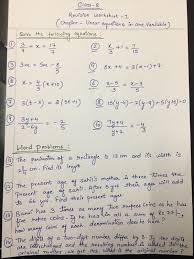 Class-8
Revision Worksheet -1
(Chapter - Linear equations in one Variable)
Solve the following equations:
① 3/7 + x = 17/7
② x/3 + 1 = 7/15
③ 5x + 9 = 5 + 3x
③ 3m = 5m - 8/5
④ 5x + 4 = 3(x-1) + 7
⑤ x = 4/5 (x + 10)
⑥ (x-5)/3 = (x-3)/5
⑦ 3(t-3) = 5(2t+1)
⑧ 15(y-4) - 2(y-9) + 5(y+6) = 0
⑨ (3y+4)/(2-6y) = -2/5
⑩ (7y+4)/(y+2) = -4/3
Word problems:
⑪ The perimeter of a rectangle is 13 cm and its width is 2 3/4 cm. Find its length
⑫ The present age of Sahil's mother is three times the present age of Sahil. After 5 yrs their ages will add to 66 yrs. Find their present ages
⑬ Bansi has 3 times as many two rupees coins as he has five rupee coins. If he has in all a sum of Rs 77/-, how many coins of each denomination does he have?
⑭ The digits of a two-digit number differ by 3. If the digits are interchanged and the resulting number is added to the original number, we get 143. What is the original